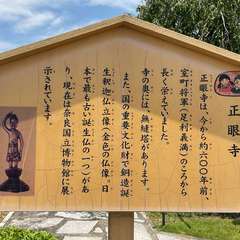 正眼寺
正眼寺は、今から約六〇〇年前、
室町将軍（足利義満）のころから
長く栄えていました。
寺の奥には、無縫塔があります。
また、国の重要文化財で銅造誕
生釈迦仏立像（金色の仏像）日
本で最も古い誕生仏の一つ）があ
り、現在は奈良国立博物館に展
示されています。